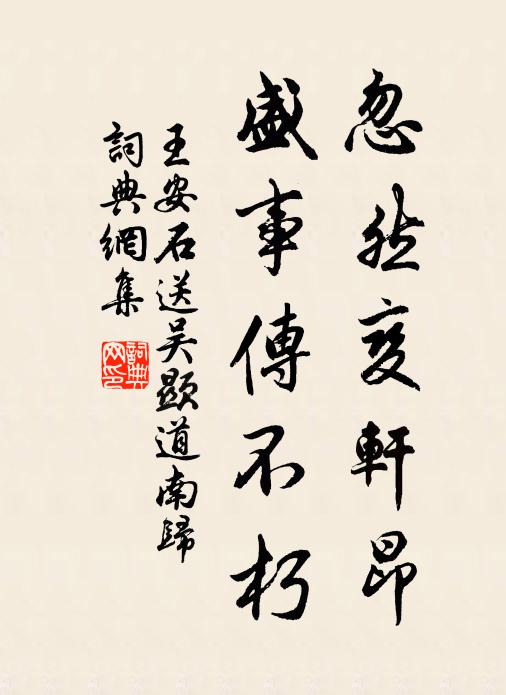 忽然变軒昂
盛事傳不朽
王安石送吴顯道南歸
詞典網集
詞典网印